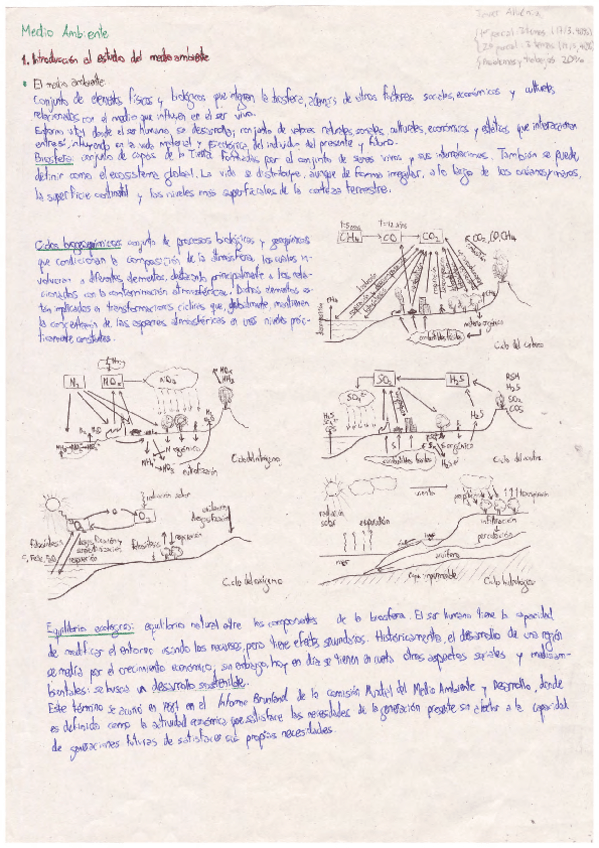 Medio Ambiente
1. Introducción al estudio del medio ambiente
El medio ambiente
Conjunto de elementos físicos y biológicos que integran la biosfera, además de otros factores sociales, económicos y culturales
relacionados con el medio que influyen en el ser vivo.
Entorno vital desde el ser humano, su desarrollo; conjunto de valores naturales, sociales, culturales, económicos y estéticos que interaccionan
entre sí, influyendo en la vida material y del individuo del presente y futuro.
Biosfera: conjunto de capas de la Tierra formadas por el conjunto de seres vivos y sus interrelaciones. También se puede
definir como el ecosistema global. La vida se distribuye, aunque de forma irregular, a lo largo de los océanos y mares,
la superficie continental y los niveles más superficiales de la corteza terrestre.
Ciclos biogeoquímicos: conjunto de procesos biológicos y geoquímicos
que condicionan la composición de la atmósfera, los cuales in-
volucran a diferentes elementos, destacando principalmente a los rela-
cionados con la contaminación atmosférica. Dichos elementos es-
tán implicados a transformaciones cíclicas que, globalmente, mantienen
la concentración de las especies atmosféricas en unos niveles prác-
ticamente constantes.
CH₄ CO CO₂
CO₂, CO, CH₄
combustibles fósiles
materia orgánica
Ciclo del carbono
N₂ NOx NO₃⁻
N orgánico
Ciclo del nitrógeno
SO₂ H₂S
RSH
H₂S
SO₂
COS
H₂S
S orgánico
combustibles fósiles
Ciclo del azufre
radiación solar
O₂
fotosíntesis
respiración
fotosíntesis
respiración
Ciclo del oxígeno
radiación
solar
evaporación
viento
precipitación
transpiración
infiltración
percolación
mar
acuífero
capa impermeable
Ciclo hidrológico
Equilibrio ecológico: equilibrio natural entre los componentes de la biosfera. El ser humano tiene la capacidad
de modificar el entorno usando los recursos, pero tiene efectos secundarios. Históricamente, el desarrollo de una región
se medía por el crecimiento económico; sin embargo, hoy en día se tienen en cuenta otros aspectos sociales y medioam-
bientales: se busca un desarrollo sostenible.
Este término se acuñó en 1987 en el Informe Bruntland de la Comisión Mundial del Medio Ambiente y Desarrollo, donde
es definido como la actividad económica que satisface las necesidades de la generación presente sin afectar a la capacidad
de generaciones futuras de satisfacer sus propias necesidades.